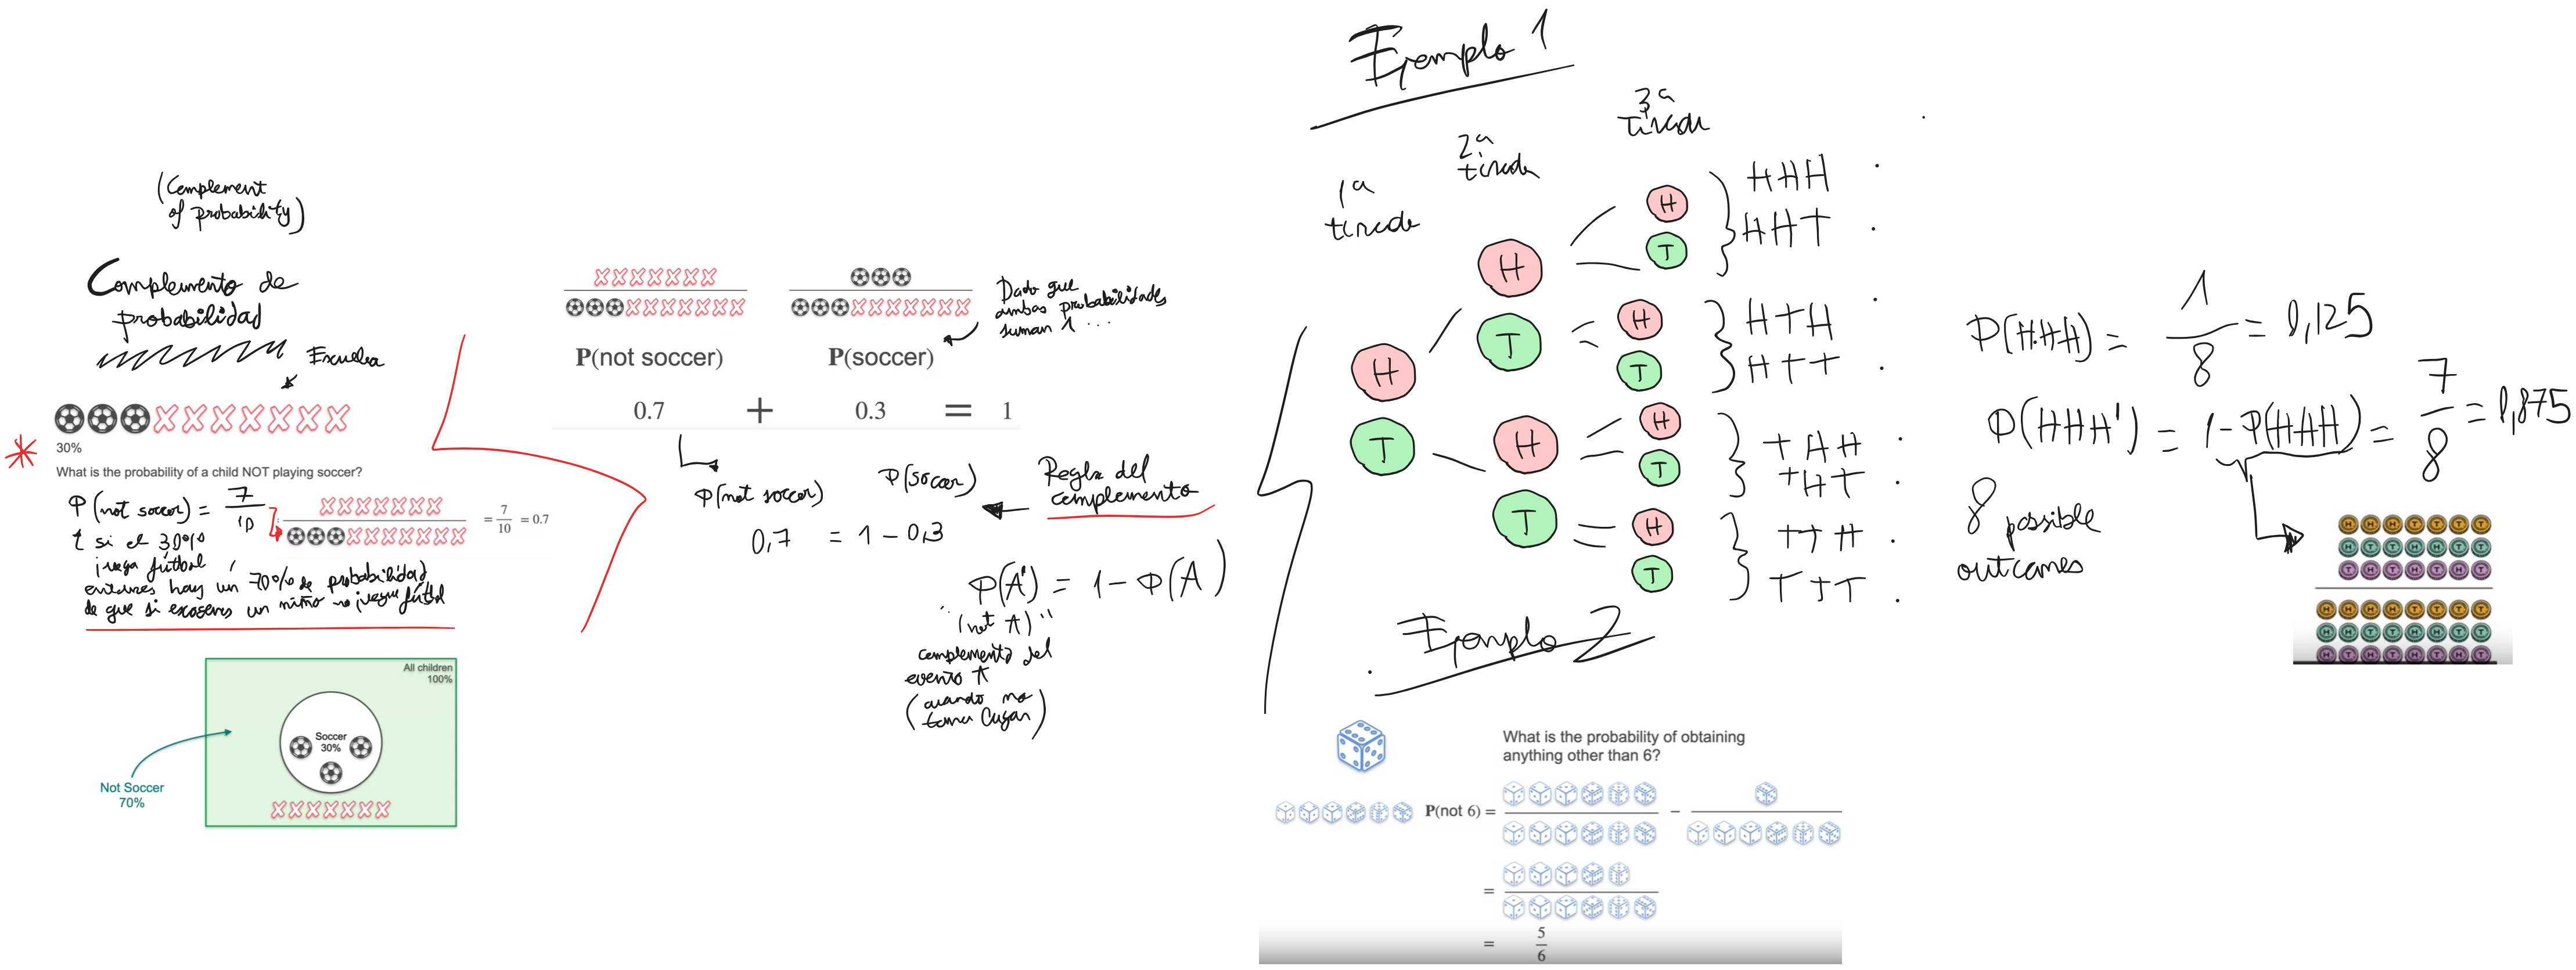 (Complement
of probability)
Complemento de
probabilidad
Escuela
30%
What is the probability of a child NOT playing soccer?
P(not soccer) = 7/10
= 7/10 = 0.7
si el 30%
juega fútbol,
entonces hay un 70% de probabilidad
de que si escogemos un niño no juegue fútbol
All children
100%
Soccer
30%
Not Soccer
70%
P(not soccer)
P(soccer)
0.7 + 0.3 = 1
Dado que
ambas probabilidades
suman 1 ...
P(not soccer)
P(soccer)
0,7 = 1 - 0,3
Regla del
complemento
P(A') = 1 - P(A)
"(not A)"
complemento del
evento A
(cuando no
toma lugar)
Ejemplo 1
1ª
tirada
2ª
tirada
3ª
tirada
H
T
H
T
H
T
H
T
H
T
H
T
H
T
HHH
HHT
HTH
HTT
THH
THT
TTH
TTT
P(HHH) = 1/8 = 0,125
P(HHH') = 1-P(HHH) = 7/8 = 0,875
8 possible
outcomes
H H H T T T T
H T T H H T T
T H T H T H T
H H H H T T T T
H H T T H H T T
H T H T H T H T
Ejemplo 2
What is the probability of obtaining
anything other than 6?
P(not 6) = -
=
= 5/6